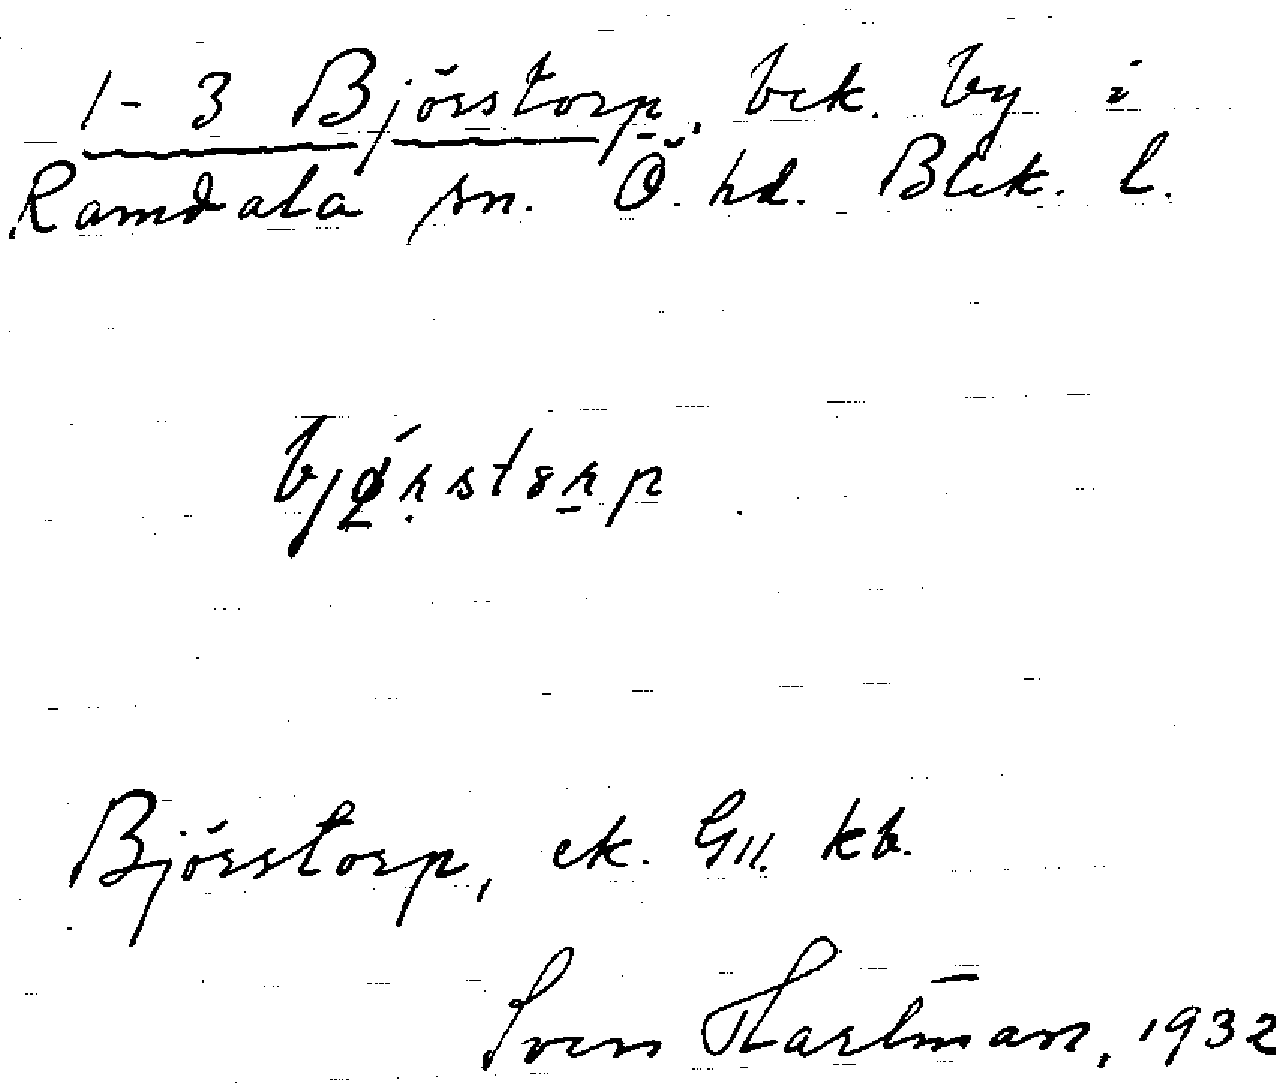 1-3 Björstorp, bek. by i
Ramdala sn. Ö. hd. Blek. l.
bjǿrstorp
Björstorp, ek. GII. kb.
Sven Hartman, 1932